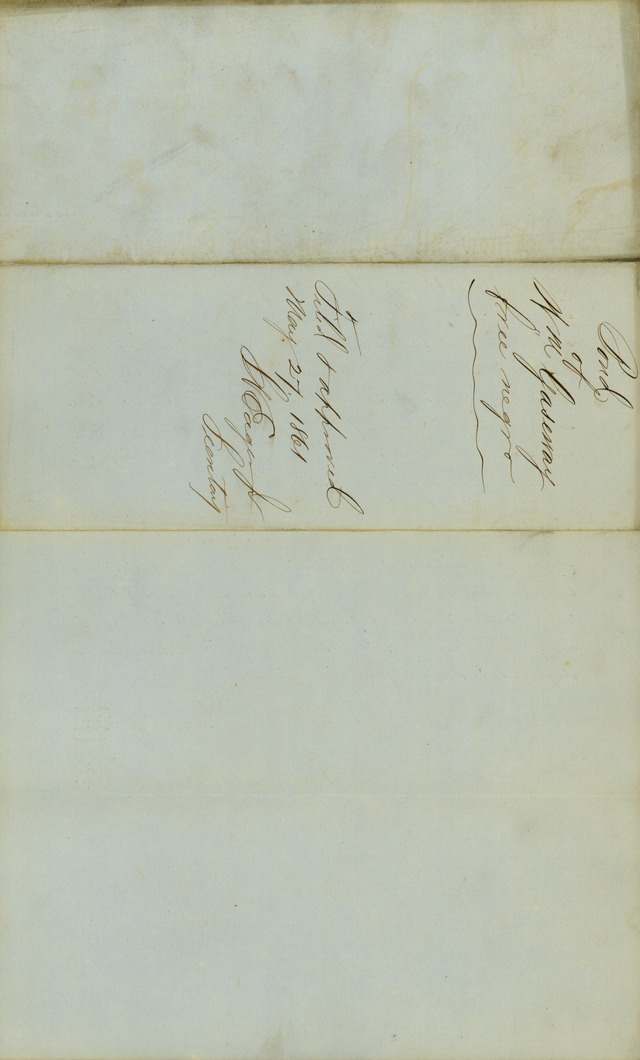 Bond
of
Wm Gaseway
free negro
Filed & approved
May 27 1861
Secretary